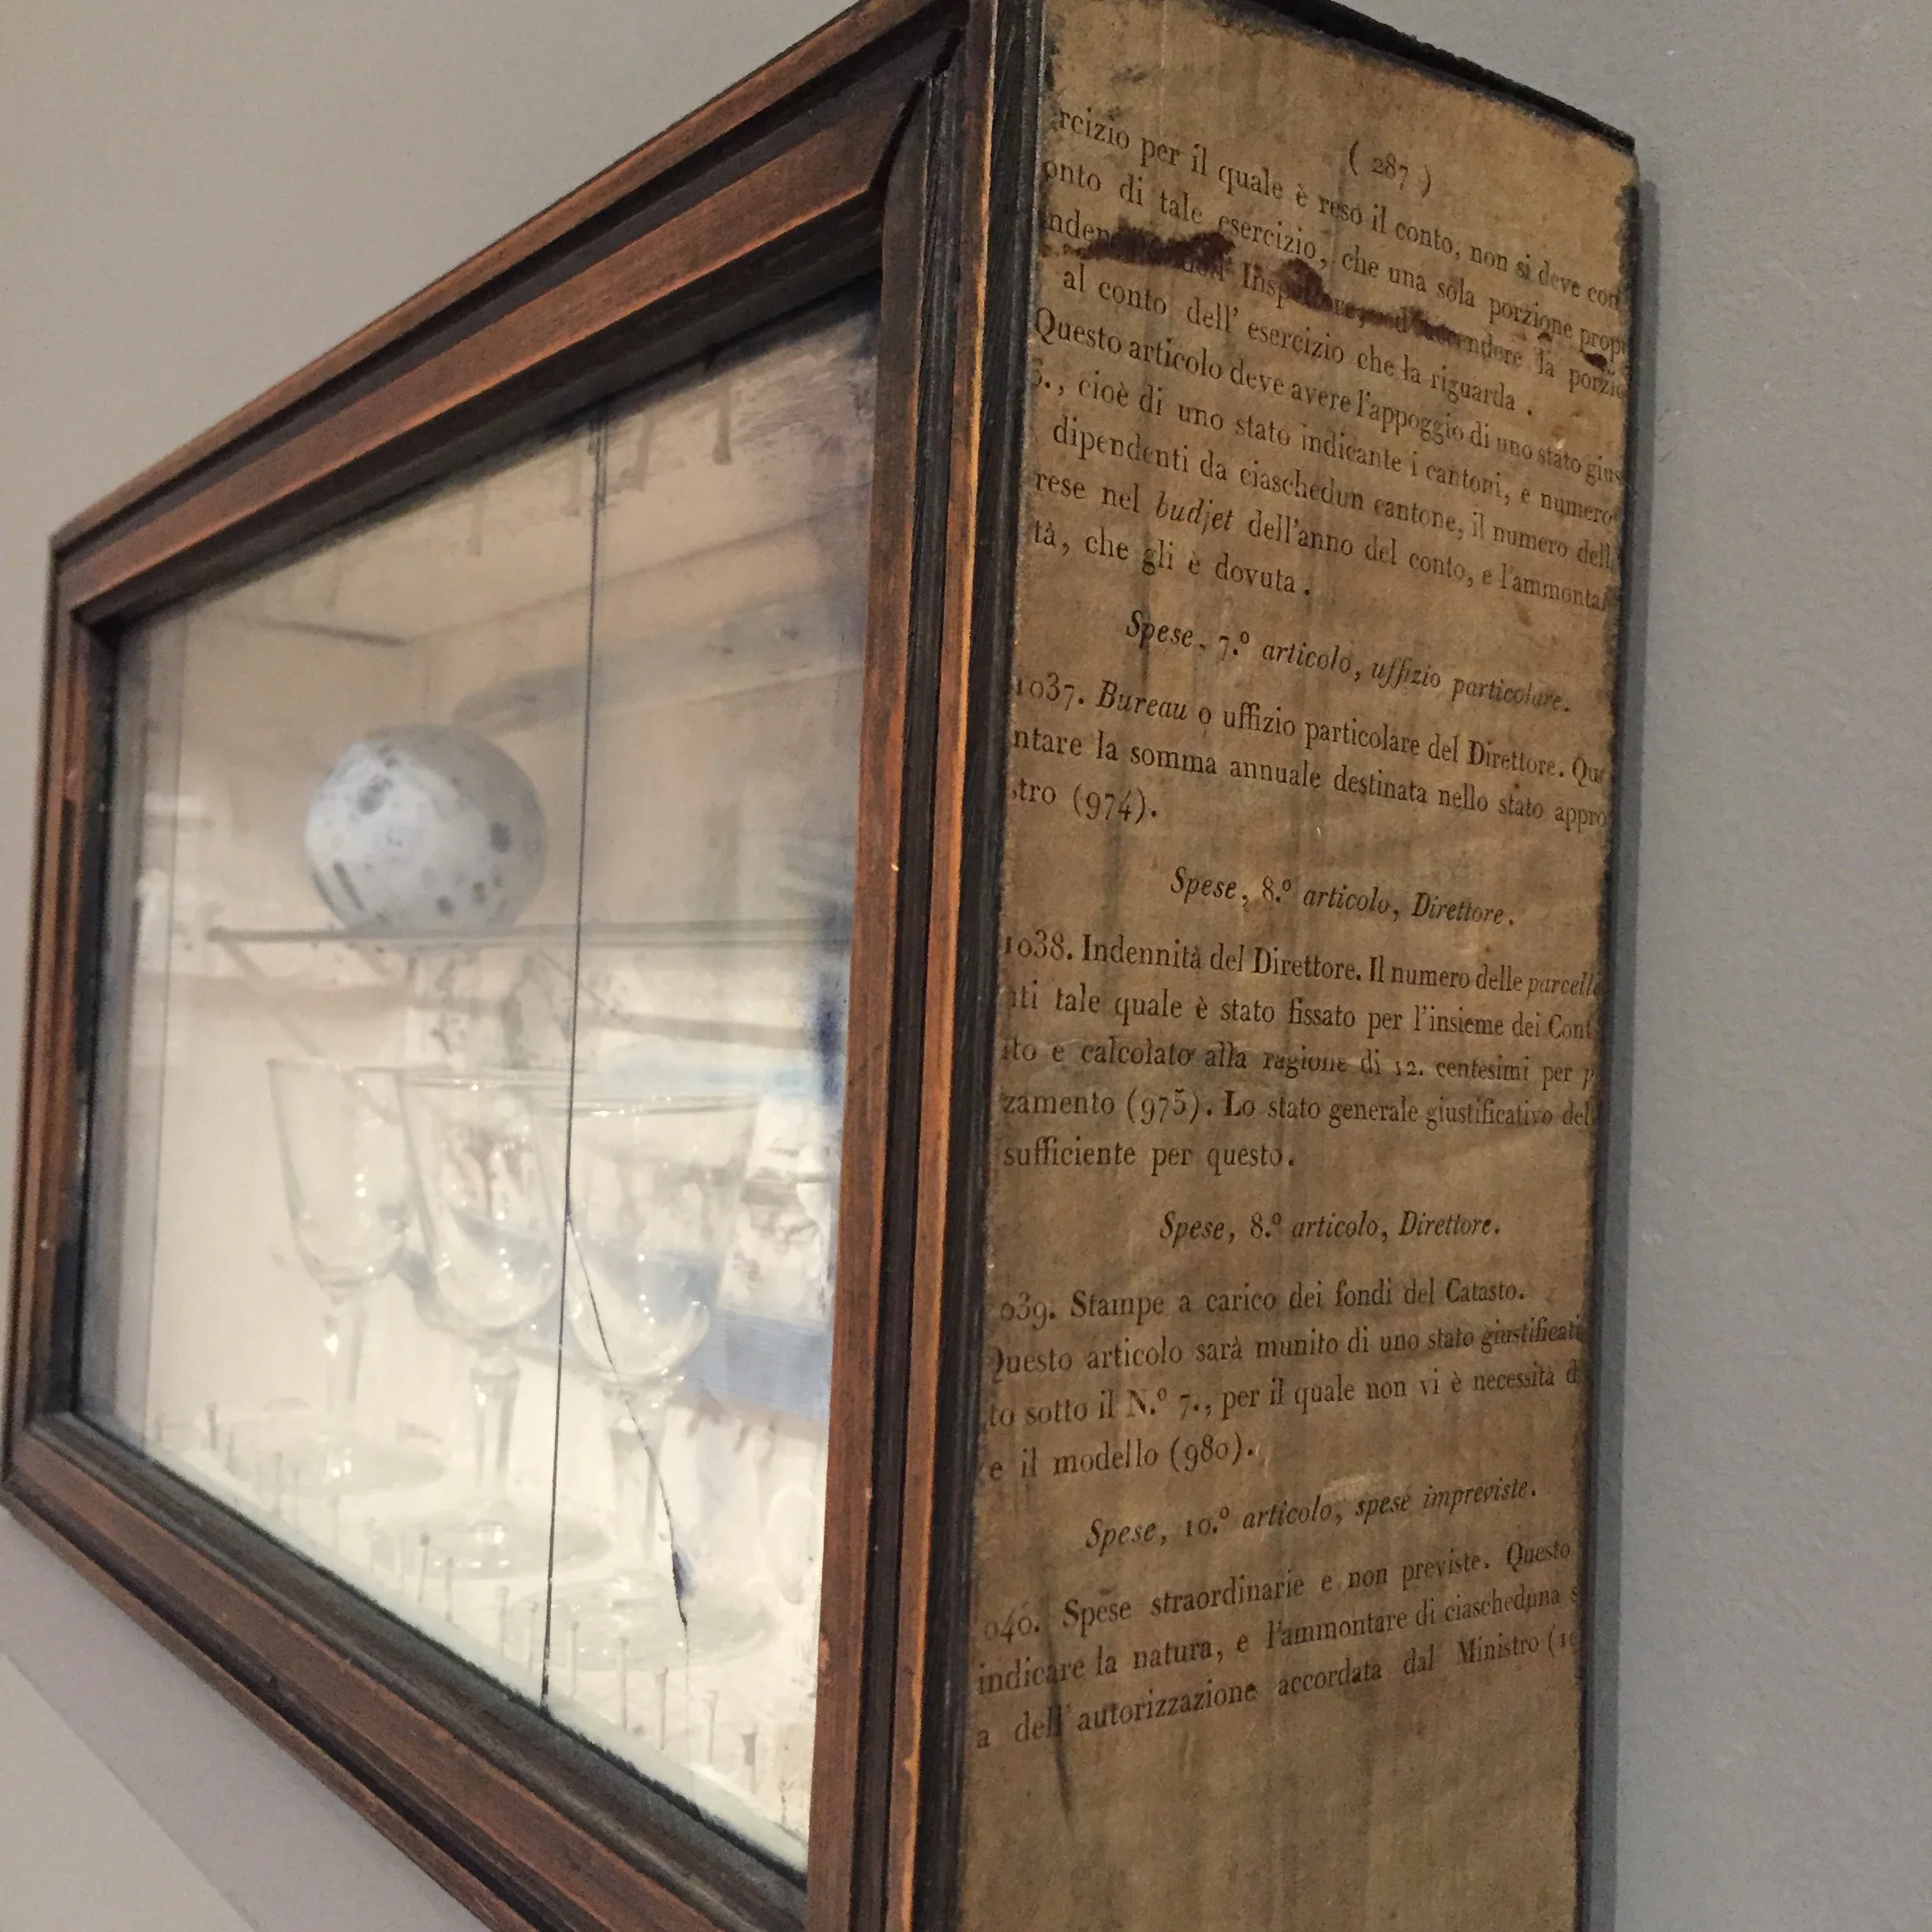 ( 287 )
rcizio per il quale è reso il conto, non si deve con
onto di tale esercizio, che una sola porzione prop
Inspettore, ed attendere la porzio
al conto dell' esercizio che la riguarda .
Questo articolo deve avere l'appoggio di uno stato gius
6., cioè di uno stato indicante i cantoni, e numero
dipendenti da ciaschedun cantone, il numero dell
rese nel budjet dell'anno del conto, e l'ammontar
tà, che gli è dovuta .
Spese, 7.º articolo, uffizio particolare.
1037. Bureau o uffizio particolare del Direttore. Que
ntare la somma annuale destinata nello stato appro
stro (974).
Spese, 8.º articolo, Direttore.
1038. Indennità del Direttore. Il numero delle parcelle
nti tale quale è stato fissato per l'insieme dei Cont
ito e calcolato alla ragione di 12. centesimi per p
zamento (975). Lo stato generale giustificativo del
sufficiente per questo.
Spese, 8.º articolo, Direttore.
039. Stampe a carico dei fondi del Catasto.
Questo articolo sarà munito di uno stato giustificati
to sotto il N.º 7., per il quale non vi è necessità d
e il modello (980).
Spese, 10.º articolo, spese impreviste.
040. Spese straordinarie e non previste. Questo
indicare la natura, e l'ammontare di ciascheduna s
a dell' autorizzazione accordata dal Ministro (10